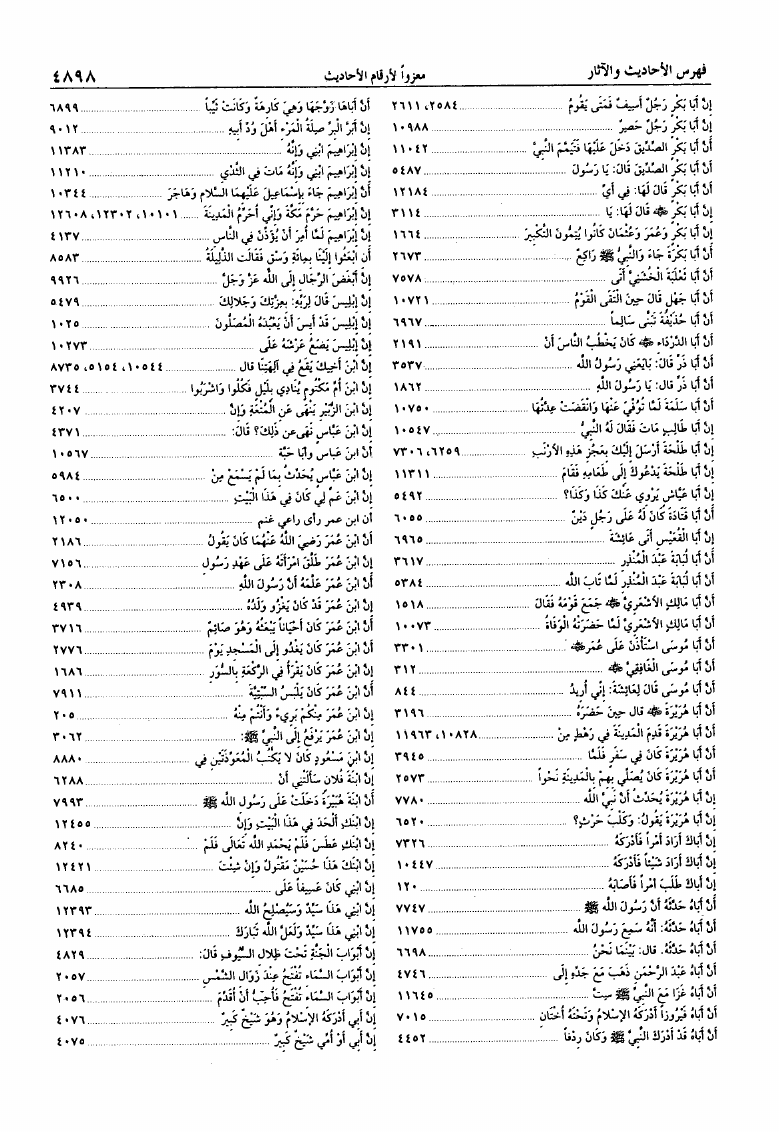 فهرس الأحاديث والآثار
معزواً لأرقام الأحاديث
٤٨٩٨
إِنَّ أَبَا بَكْرٍ رَجُلٌ أَسِيفٌ فَمَتَى يَقُومُ ... ٢٥٨٤، ٢٦١١
إِنَّ أَبَا بَكْرٍ رَجُلٌ حَصِرٌ ... ١٠٩٨٨
أَنَّ أَبَا بَكْرٍ الصِّدِّيقَ دَخَلَ عَلَيْهَا فَتَيَمَّمَ النَّبِيَّ ... ١١٠٤٢
أَنَّ أَبَا بَكْرٍ الصِّدِّيقَ قَالَ: يَا رَسُولَ ... ٥٤٨٧
أَنَّ أَبَا بَكْرٍ قَالَ لَهَا: فِي أَيِّ ... ١٢١٨٤
أَنَّ أَبَا بَكْرٍ ﵁ قَالَ لَهَا: يَا ... ٣١١٤
أَنَّ أَبَا بَكْرٍ وَعُمَرَ وَعُثْمَانَ كَانُوا يُتِمُّونَ التَّكْبِيرَ ... ١٦٦٤
أَنَّ أَبَا بَكْرَةَ جَاءَ وَالنَّبِيُّ ﷺ رَاكِعٌ ... ٢٦٧٣
أَنَّ أَبَا ثَعْلَبَةَ الْخُشَنِيَّ أَتَى ... ٧٥٧٨
أَنَّ أَبَا جَهْلٍ قَالَ حِينَ الْتَقَى الْقَوْمُ ... ١٠٧٢١
أَنَّ أَبَا حُذَيْفَةَ تَبَنَّى سَالِماً ... ٦٩٦٧
أَنَّ أَبَا الدَّرْدَاءِ ﵁ كَانَ يَخْطُبُ النَّاسَ أَنْ ... ٢١٩١
أَنَّ أَبَا ذَرٍّ قَالَ: بَايَعَنِي رَسُولُ الله ... ٣٥٣٧
أَنَّ أَبَا ذَرٍّ قال: يَا رَسُولَ اللهِ ... ١٨٦٢
أَنَّ أَبَا سَلَمَةَ لَمَّا تُوُفِّيَ عَنْهَا وَانْقَضَتْ عِدَّتُهَا ... ١٠٧٥٠
أَنَّ أَبَا طَالِبٍ مَاتَ فَقَالَ لَهُ النَّبِيُّ ... ١٠٥٤٧
إِنَّ أَبَا طَلْحَةَ أَرْسَلَ إِلَيْكَ بِعَجُزِ هَذِهِ الأَرْنَبِ ... ٦٢٥٩، ٧٣٠٦
إِنَّ أَبَا طَلْحَةَ يَدْعُوكَ إِلَى طَعَامِهِ فَقَامَ ... ١١٣١١
إِنَّ أَبَا عَيَّاشٍ يَرْوِي عَنْكَ كَذَا وَكَذَا؟ ... ٥٤٩٢
أَنَّ أَبَا قَتَادَةَ كَانَ لَهُ عَلَى رَجُلٍ دَيْنٌ ... ٦٠٥٥
أَنَّ أَبَا الْقُعَيْسِ أَتَى عَائِشَةَ ... ٦٩٦٥
أَنَّ أَبَا لُبَابَةَ عَبْدَ الْمُنْذِرِ ... ٣٦١٧
أَنَّ أَبَا لُبَابَةَ عَبْدَ الْمُنْذِرِ لَمَّا تَابَ الله ... ٥٣٨٤
أَنَّ أَبَا مَالِكٍ الأَشْعَرِيَّ ﵁ جَمَعَ قَوْمَهُ فَقَالَ ... ١٥١٨
أَنَّ أَبَا مَالِكٍ الأَشْعَرِيَّ لَمَّا حَضَرَتْهُ الْوَفَاةُ ... ١٠٠٧٣
أَنَّ أَبَا مُوسَى اسْتَأْذَنَ عَلَى عُمَرَ ﵁ ... ٣٣٠١
أَنَّ أَبَا مُوسَى الْغَافِقِيَّ ﵁ ... ٣١٢
أَنَّ أَبَا مُوسَى قَالَ لِعَائِشَةَ: إِنِّي أُرِيدُ ... ٨٤٤
أَنَّ أَبَا هُرَيْرَةَ ﵁ قال حِينَ حَضَرَهُ ... ٣١٩٦
أَنَّ أَبَا هُرَيْرَةَ قَدِمَ الْمَدِينَةَ فِي رَهْطٍ مِنْ ... ١٠٨٢٨، ١١٩٦٣
أَنَّ أَبَا هُرَيْرَةَ كَانَ فِي سَفَرٍ فَلَمَّا ... ٣٩٤٥
أَنَّ أَبَا هُرَيْرَةَ كَانَ يُصَلِّي بِهِمْ بِالْمَدِينَةِ نَحْواً ... ٢٥٧٣
إِنَّ أَبَا هُرَيْرَةَ يُحَدِّثُ أَنَّ نَبِيَّ الله ... ٧٧٨٠
إِنَّ أَبَا هُرَيْرَةَ يَقُولُ: وَكَلْبَ حَرْثٍ؟ ... ٦٥٢٠
إِنَّ أَبَاكَ أَرَادَ أَمْراً فَأَدْرَكَهُ ... ٧٣٢٦
إِنَّ أَبَاكَ أَرَادَ شَيْئاً فَأَدْرَكَهُ ... ١٠٤٤٧
إِنَّ أَبَاكَ طَلَبَ امْراً فَأَصَابَهُ ... ١٢٠
أَنَّ أَبَاهُ حَدَّثَهُ أَنَّ رَسُولَ الله ﷺ ... ٧٧٤٧
أَنَّ أَبَاهُ حَدَّثَهُ: أَنَّهُ سَمِعَ رَسُولَ الله ... ١١٧٥٥
أَنَّ أَبَاهُ حَدَّثَهُ. قال: بَيْنَمَا نَحْنُ ... ٦٦٩٨
أَنَّ أَبَاهُ عَبْدَ الرَّحْمَنِ ذَهَبَ مَعَ جَدِّهِ إِلَى ... ٤٧٤٦
أَنَّ أَبَاهُ غَزَا مَعَ النَّبِيِّ ﷺ سِتَّ ... ١١٦٤٥
أَنَّ أَبَاهُ فَيْرُوزاً أَدْرَكَهُ الإِسْلَامُ وَتَحْتَهُ أُخْتَانِ ... ٧٠١٥
أَنَّ أَبَاهُ قَدْ أَدْرَكَ النَّبِيَّ ﷺ وَكَانَ رِدْفاً ... ٤٤٥٢
أَنَّ أَبَاهَا زَوَّجَهَا وَهِيَ كَارِهَةٌ وَكَانَتْ ثَيِّباً ... ٦٨٩٩
إِنَّ أَبَرَّ الْبِرِّ صِلَةُ الْمَرْءِ أَهْلَ وُدِّ أَبِيهِ ... ٩٠١٢
إِنَّ إِبْرَاهِيمَ ابْنِي وَإِنَّهُ ... ١١٣٨٣
إِنَّ إِبْرَاهِيمَ ابْنِي وَإِنَّهُ مَاتَ فِي الثَّدْيِ ... ١١٢١٠
أَنَّ إِبْرَاهِيمَ جَاءَ بِإِسْمَاعِيلَ عَلَيْهِمَا السَّلَام وَهَاجَرَ ... ١٠٣٤٤
إِنَّ إِبْرَاهِيمَ حَرَّمَ مَكَّةَ وَإِنِّي أُحَرِّمُ الْمَدِينَةَ ... ١٠١٠١، ١٢٣٠٢، ١٢٦٠٨
إِنَّ إِبْرَاهِيمَ لَمَّا أُمِرَ أَنْ يُؤَذِّنَ فِي النَّاسِ ... ٤١٣٧
أَن ابْعَثُوا إِلَيْنَا بِمِائَةِ وَسْقٍ فَقَالَتِ الدَّلِيلَةُ ... ٨٥٨٣
إِنَّ أَبْغَضَ الرِّجَالِ إِلَى اللهِ عَزَّ وَجَلَّ ... ٩٩٢٦
إِنَّ إِبْلِيسَ قَالَ لِرَبِّهِ: بِعِزَّتِكَ وَجَلَالِكَ ... ٥٤٧٩
إِنَّ إِبْلِيسَ قَدْ أَيِسَ أَنْ يَعْبُدَهُ الْمُصَلُّونَ ... ١٠٢٥
إِنَّ إِبْلِيسَ يَضَعُ عَرْشَهُ عَلَى ... ١٠٢٧٣
إِنَّ ابْنَ أَخِيكَ يَقَعُ فِي آلِهَتِنَا قال ... ١٠٥٤٤، ٥١٥٤، ٨٧٣٥
إِنَّ ابْنَ أُمِّ مَكْتُومٍ يُنَادِي بِلَيْلٍ فَكُلُوا وَاشْرَبُوا ... ٣٧٤٤
إِنَّ ابْنَ الزُّبَيْرِ يَنْهَى عَنِ الْمُتْعَةِ وَإِنَّ ... ٤٢٠٧
إِنَّ ابْنَ عَبَّاسٍ نَهَى عن ذَلِكَ؟ قَالَ: ... ٤٣٧١
أَنَّ ابن عباس وأبا حَبَّة ... ١٠٥٦٧
إِنَّ ابْنَ عَبَّاسٍ يُحَدِّثُ بِمَا لَمْ يَسْمَعْ مِنْ ... ٥٩٨٤
إِنَّ ابْنَ عَمٍّ لِي كَانَ فِي هَذَا الْبَيْتِ ... ٦٥٠٠
أن ابن عمر رأى راعي غنم ... ١٢٠٥٠
أَنَّ ابْنَ عُمَرَ رَضِيَ اللَّهُ عَنْهُمَا كَانَ يَقُولُ ... ٢١٨٦
إِنَّ ابْنَ عُمَرَ طَلَّقَ امْرَأَتَهُ عَلَى عَهْدِ رَسُولِ ... ٧١٥٦
أَنَّ ابْنَ عُمَرَ عَلَّمَهُ أَنَّ رَسُولَ اللَّهِ ... ٢٣٠٨
إِنَّ ابْنَ عُمَرَ قَدْ كَانَ يَغْزُو وَلَدُهُ ... ٤٩٣٩
أَنَّ ابْنَ عُمَرَ كَانَ أَحْيَاناً يَبْعَثُهُ وَهُوَ صَائِمٌ ... ٣٧١٦
أَنَّ ابْنَ عُمَرَ كَانَ يَغْدُو إِلَى الْمَسْجِدِ يَوْمَ ... ٢٧٧٦
أَنَّ ابْنَ عُمَرَ كَانَ يَقْرَأُ فِي الرَّكْعَةِ بِالسُّوَرِ ... ١٦٨٦
أَنَّ ابْنَ عُمَرَ كَانَ يَلْبَسُ السِّبْتِيَّةَ ... ٧٩١١
إِنَّ ابْنَ عُمَرَ مِنْكُمْ بَرِيءٌ وَأَنْتُمْ مِنْهُ ... ٢٠٥
إِنَّ ابْنَ عُمَرَ يَرْفَعُ إِلَى النَّبِيِّ ﷺ: ... ٣٠٦٢
إِنَّ ابْنَ مَسْعُودٍ كَانَ لَا يَكْتُبُ الْمُعَوِّذَتَيْنِ فِي ... ٨٨٨٠
إِنَّ ابْنَةَ فُلَانٍ سَأَلَتْنِي أَنْ ... ٦٢٨٨
أَنَّ ابْنَةَ هُبَيْرَةَ دَخَلَتْ عَلَى رَسُولِ اللَّهِ ﷺ ... ٧٩٩٣
إِنَّ ابْنَكِ أَلْحَدَ فِي هَذَا الْبَيْتِ وَإِنَّ ... ١٢٤٥٥
إِنَّ ابْنَكِ عَطَسَ فَلَمْ يَحْمَدِ اللَّهَ تَعَالَى فَلَمْ ... ٨٢٤٠
إِنَّ ابْنَكَ هَذَا حُسَيْنٌ مَقْتُولٌ وَإِنْ شِئْتَ ... ١٢٤٢١
إِنَّ ابْنِي كَانَ عَسِيفاً عَلَى ... ٦٦٨٥
إِنَّ ابْنِي هَذَا سَيِّدٌ وَسَيُصْلِحُ اللَّه ... ١٢٣٩٣
إِنَّ ابْنِي هَذَا سَيِّدٌ وَلَعَلَّ اللَّهَ تَبَارَكَ ... ١٢٣٩٤
إِنَّ أَبْوَابَ الْجَنَّةِ تَحْتَ ظِلَالِ السُّيُوفِ قَالَ: ... ٤٨٢٩
إِنَّ أَبْوَابَ السَّمَاءِ تُفْتَحُ عِنْدَ زَوَالِ الشَّمْسِ ... ٢٠٥٧
إِنَّ أَبْوَابَ السَّمَاءِ تُفْتَحُ فَأُحِبُّ أَنْ أُقَدِّمَ ... ٢٠٥٦
إِنَّ أَبِي أَدْرَكَهُ الإِسْلَامُ وَهُوَ شَيْخٌ كَبِيرٌ ... ٤٠٧٦
إِنَّ أَبِي أَوْ أُمِّي شَيْخٌ كَبِيرٌ ... ٤٠٧٥